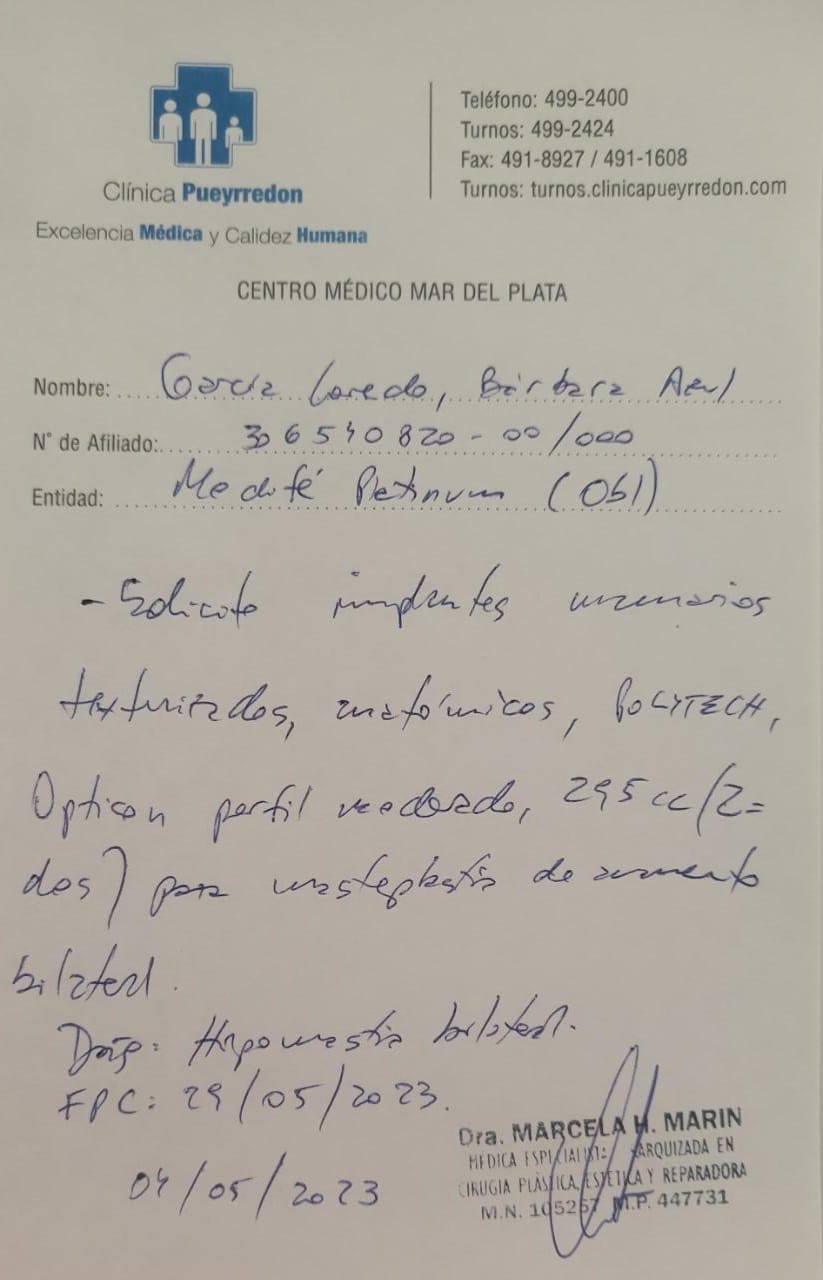 Clínica Pueyrredon
Excelencia Médica y Calidez Humana
Teléfono: 499-2400
Turnos: 499-2424
Fax: 491-8927 / 491-1608
Turnos: turnos.clinicapueyrredon.com
CENTRO MÉDICO MAR DEL PLATA
Nombre: García Loredo, Bárbara Azul
N° de Afiliado: 306540820-00/000
Entidad: Medifé Platinum (Obl)
- Solicito implantes mamarios
texturizados, anatómicos, POLYTECH,
Opticon perfil moderado, 295 cc (2=
dos) para mastoplastia de aumento
bilateral.
Diag: Hipomastia bilateral.
FPC: 29/05/2023.
04/05/2023
Dra. MARCELA H. MARIN
MEDICA ESPECIALISTA JERARQUIZADA EN
CIRUGIA PLASTICA, ESTETICA Y REPARADORA
M.N. 105267 M.P. 447731